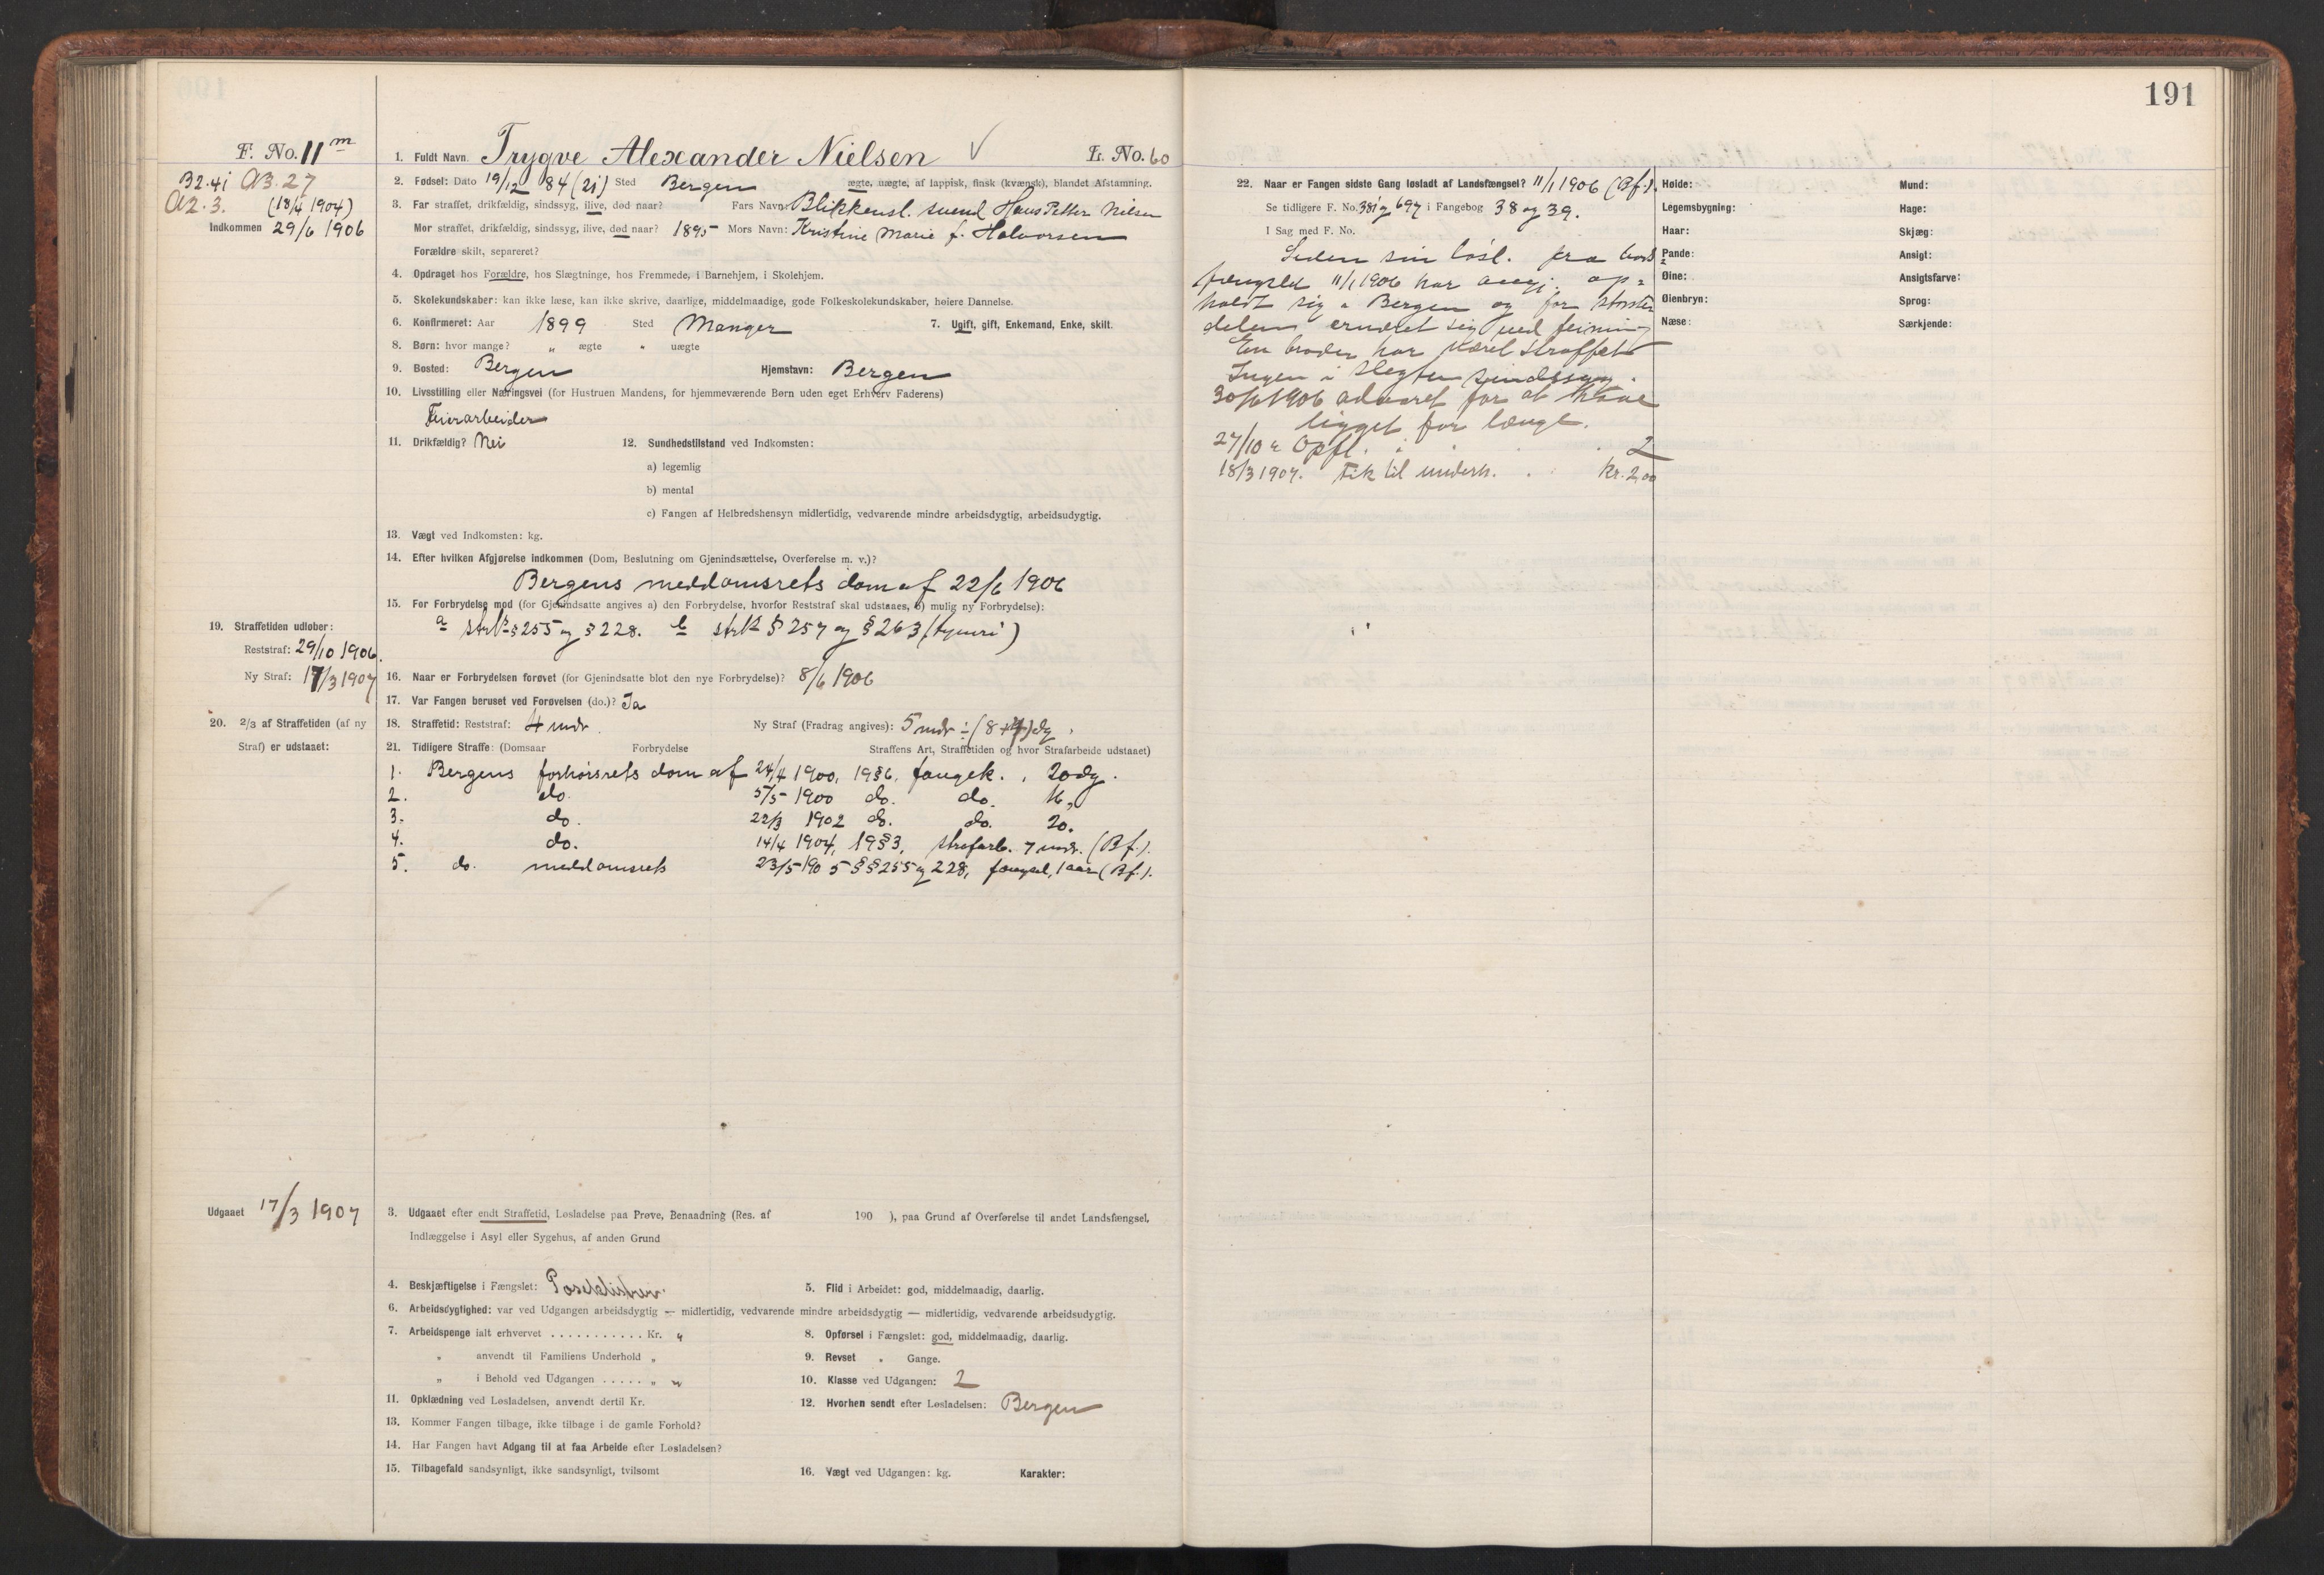 191
F. No. 11 m
B2.41 A3.27
A2.3. (18/4 1904)
Indkommen 29/6 1906
1. Fuldt Navn Trygve Alexander Nielsen √ L. No. 60
2. Fødsel: Dato 19/12 84 (21) Sted Bergen ægte, uægte, af lappisk, finsk (kvænsk), blandet Afstamning.
3. Far straffet, drikfældig, sindssyg, ilive, død naar? Fars Navn: Blikkensl. svend Hans Petter Nilsen
Mor straffet, drikfældig, sindssyg, ilive, død naar? 1895 Mors Navn: Kristine Marie f. Halvorsen
Forældre skilt, separeret?
4. Opdraget hos Forældre, hos Slægtninge, hos Fremmede, i Barnehjem, i Skolehjem.
5. Skolekundskaber: kan ikke læse, kan ikke skrive, daarlige, middelmaadige, gode Folkeskolekundskaber, høiere Dannelse.
6. Konfirmeret: Aar 1899 Sted Manger 7. Ugift, gift, Enkemand, Enke, skilt.
8. Børn: hvor mange? „ ægte „ uægte
9. Bosted: Bergen Hjemstavn: Bergen
10. Livsstilling eller Næringsvei (for Hustruen Mandens, for hjemmeværende Børn uden eget Erhverv Faderens)
Feierarbeider
11. Drikfældig? Nei 12. Sundhedstilstand ved Indkomsten:
a) legemlig
b) mental
c) Fangen af Helbredshensyn midlertidig, vedvarende mindre arbeidsdygtig, arbeidsudygtig.
13. Vægt ved Indkomsten: kg.
14. Efter hvilken Afgjørelse indkommen (Dom, Beslutning om Gjenindsættelse, Overførelse m. v.)?
Bergens meddomsrets dom af 22/6 1906
15. For Forbrydelse mod (for Gjenindsatte angives a) den Forbrydelse, hvorfor Reststraf skal udstaaes, b) mulig ny Forbrydelse):
a strl § 255 og § 228. b strl § 257 og § 263 (tyveri)
19. Straffetiden udløber:
Reststraf: 29/10 1906.
Ny Straf: 17/3 1907
16. Naar er Forbrydelsen forøvet (for Gjenindsatte blot den nye Forbrydelse)? 8/6 1906
17. Var Fangen beruset ved Forøvelsen (do.)? Ja
20. 2/3 af Straffetiden (af ny
Straf) er udstaaet:
18. Straffetid: Reststraf: 4 mdr. Ny Straf (Fradrag angives): 5 mdr ÷ (8 + ) dg.
21. Tidligere Straffe: (Domsaar Forbrydelse Straffens Art, Straffetiden og hvor Strafarbeide udstaaet)
1. Bergens forhørsrets dom af 24/4 1900, 19§6, fangek. , 20 dg.
2. do. 5/5 1900 do. do. 16 „
3. do. 22/3 1902 do. do. 20.
4. do. 14/4 1904, 19§3, strafarb. 7 mdr. (Bf.).
5. do. meddomsrets 23/5 1905 §§ 255 og 228, fængsel, 1 aar (Bf.).
Udgaaet 17/3 1907
3. Udgaaet efter endt Straffetid, Løsladelse paa Prøve, Benaadning (Res. af 190 ), paa Grund af Overførelse til andet Landsfængsel,
Indlæggelse i Asyl eller Sygehus, af anden Grund
4. Beskjæftigelse i Fængslet: Poseklistrer. 5. Flid i Arbeidet: god, middelmaadig, daarlig.
6. Arbeidsdygtighed: var ved Udgangen arbeidsdygtig — midlertidig, vedvarende mindre arbeidsdygtig — midlertidig, vedvarende arbeidsudygtig.
7. Arbeidspenge ialt erhvervet . . . . . . . . . . . Kr. „ 8. Opførsel i Fængslet: god, middelmaadig, daarlig.
„ anvendt til Familiens Underhold „ 9. Revset „ Gange.
„ i Behold ved Udgangen . . . . . „ „ 10. Klasse ved Udgangen: 2
11. Opklædning ved Løsladelsen, anvendt dertil Kr. 12. Hvorhen sendt efter Løsladelsen: Bergen
13. Kommer Fangen tilbage, ikke tilbage i de gamle Forhold?
14. Har Fangen havt Adgang til at faa Arbeide efter Løsladelsen?
15. Tilbagefald sandsynligt, ikke sandsynligt, tvilsomt 16. Vægt ved Udgangen: kg. Karakter:
22. Naar er Fangen sidste Gang løsladt af Landsfængsel? 11/1 1906 (Bf.).
Se tidligere F. No. 381 og 697 i Fangebog 38 og 39.
I Sag med F. No.
Siden sin løsl. fra lands
fængslet 11/1 1906 har angj. op=
holdt sig i Bergen og for største
delen ernæret sig ved feining
En broder har været straffet
Ingen i slegten sindssyg.
30/6 1906 advaret for at have
ligget for længe.
27/10 „ Opfl. i . . 2
18/3 1907. Fik til underh. . . Kr. 2,00
Høide:
Legemsbygning:
Haar:
Pande:
Øine:
Øienbryn:
Næse:
Mund:
Hage:
Skjæg:
Ansigt:
Ansigtsfarve:
Sprog:
Særkjende: